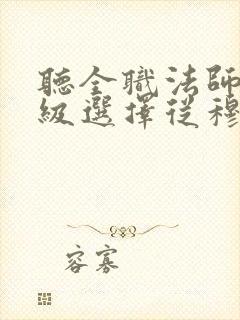 聽全職法師
級選擇從穆
容寡